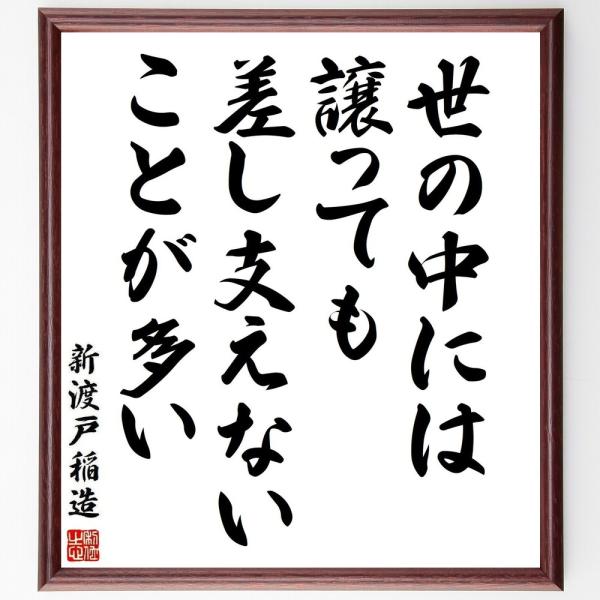 世の中には
譲っても
差し支えない
ことが多い
新渡戸稲造